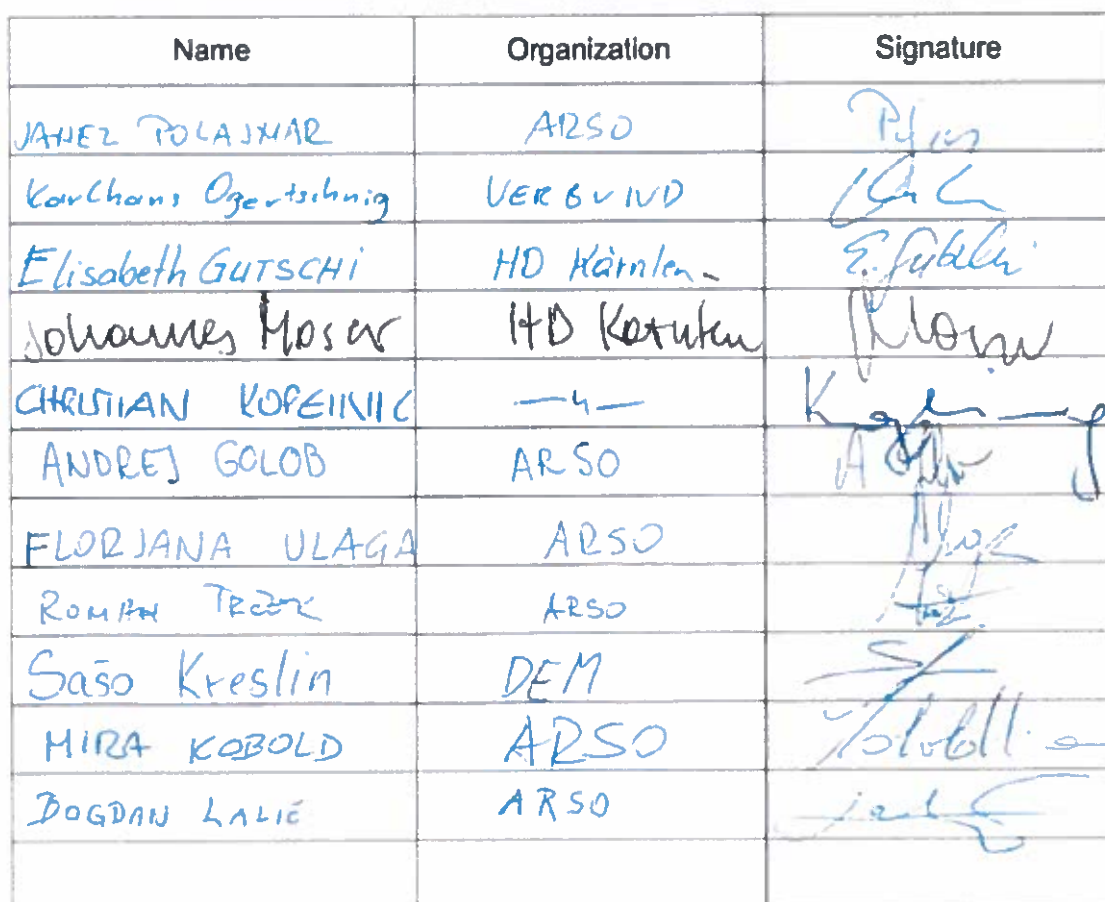 Name Organization Signature
JANEZ POLAJNAR ARSO
Karlhans Ogertschnig VERBUND
Elisabeth GUTSCHI HD Kärnten E. Gutschi
Johannes Moser HD Kärnten Moser
CHRISTIAN KOPEINIG —"—
ANDREJ GOLOB ARSO
FLORJANA ULAGA ARSO
ROMAN TRČEK ARSO
Sašo Kreslin DEM
MIRA KOBOLD ARSO
BOGDAN LALIĆ ARSO